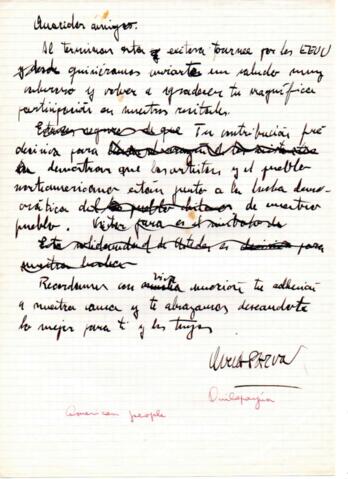 Queridos amigos:
Al terminar esta exitosa tournee por los EEUU
y desde quisiéramos enviarte un saludo muy
caluroso y volver a agradecer tu magnífica
participación en nuestros recitales.
Estamos seguros de que Tu contribución fué
decisiva para
demostrar que los artistas y el pueblo
norteamericano están junto a la lucha demo-
crática del pueblo chileno de nuestro
pueblo. para es el símbolo de
Esta solidaridad de Ustedes es decisiva para
nuestra lucha
Recordamos con viva emoción tu adhesión
a nuestra causa y te abrazamos deseandote
lo mejor para ti y los tuyos
Quilapayún
American people